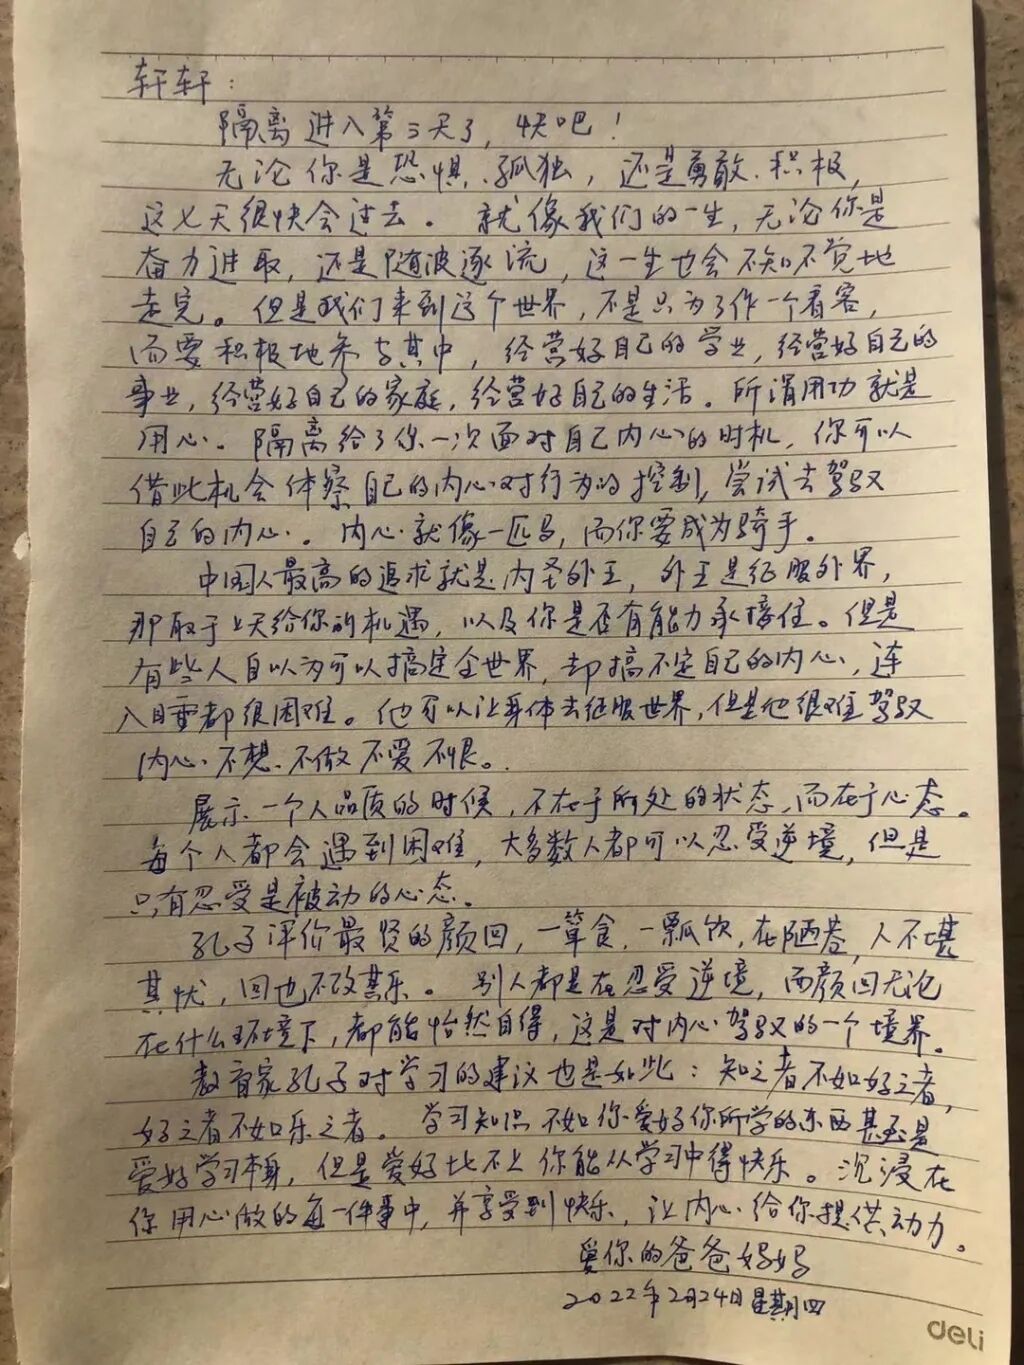 轩轩：
隔离进入第三天了，4天吧！
无论你是恐惧、孤独，还是勇敢、积极，
这七天很快会过去。就像我们的一生，无论你是
奋力进取，还是随波逐流，这一生也会不知不觉地
走完。但是我们来到这个世界，不是只为了作一个看客，
而要积极地参与其中，经营好自己的学业，经营好自己的
事业，经营好自己的家庭，经营好自己的生活。所谓用功就是
用心。隔离给了你一次面对自己内心的时机，你可以
借此机会体察自己的内心对行为的控制，尝试去驾驭
自己的内心。内心就像一匹马，而你要成为骑手。
中国人最高的追求就是内圣外王，外王是征服外界，
那取于上天给你的机遇，以及你是否有能力承接住。但是
有些人自以为可以搞定全世界，却搞不定自己的内心，连
入睡都很困难。他可以让身体去征服世界，但是他很难驾驭
内心不想、不做、不爱、不恨。
展示一个人品质的时候，不在于所处的状态，而在于心态。
每个人都会遇到困难，大多数人都可以忍受逆境，但是
只有忍受是被动的心态。
孔子评价最贤的颜回，一箪食，一瓢饮，在陋巷，人不堪
其忧，回也不改其乐。别人都是在忍受逆境，而颜回无论
在什么环境下，都能怡然自得，这是对内心驾驭的一个境界。
教育家孔子对学习的建议也是如此：知之者不如好之者，
好之者不如乐之者。学习知识不如你爱好你所学的东西甚至是
爱好学习本身，但是爱好比不上你能从学习中得快乐。沉浸在
你用心做的每一件事中，并享受到快乐，让内心给你提供动力。
爱你的爸爸妈妈
2022年2月24日星期四
deli